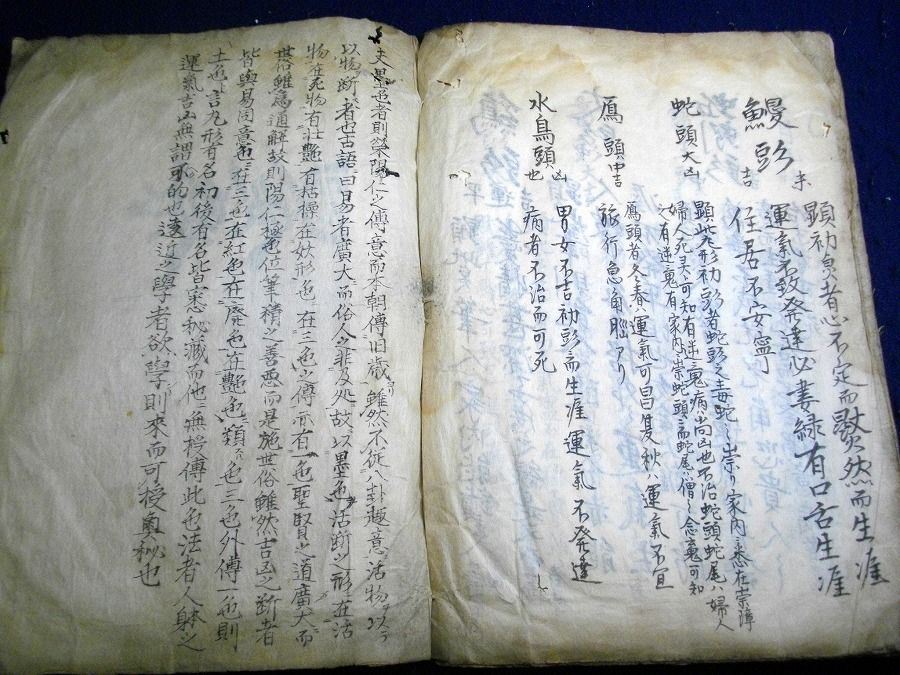 鰻頭 吉
顕初負者心不定而愛然而生涯
運氣不致発達必妻緑有口舌生涯
住居不安寧
蛇頭 大凶
顕此九形初頭者蛇頭之毒蛇之崇り家内
婦人死灵可知有迷鬼病尚凶也不治蛇頭蛇尾ハ婦人
之有迷鬼有家内崇蛇頭而蛇尾僧之念鬼可知
鳫頭 中吉
鳫頭者冬春ハ運氣可昌夏秋ハ運氣不宜
旅行急角腦アリ
水鳥頭 凶也
男女不吉初頭而生涯運氣不発達
病者不治而可死
夫墨色者則榮陽仁之傳意而本朝傳旧歳雖然不従八卦趣意活物以ラ
以物断者也古語曰易者廣大而俗人之非及処故以墨色活断之形在活
物在死物有壮艶有枯操在妙形色在三色傳亦有一色聖賢之道廣大而
世俗雖為通解故則陽仁極色位筆精之善悪而是施世俗雖然吉凶之断者
皆與易同意色在三色在紅色在廃色在艶色類色也三色外傳一色則
土色言九形有名初後有名皆寒秘蔵而他無授傳此色法者人躰之
運氣吉凶無謂不的也遠近之學者欲學則來而可授奥秘也